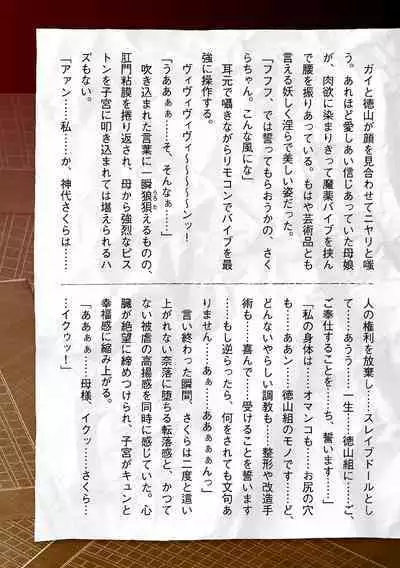 ガイと徳山が顔を見合わせてニヤリと嗤
う。あれほど愛しあい信じあっていた母娘
が、肉欲に染まりきって魔薬バイブを挟ん
で腰を振りあっている。もはや芸術品とも
言える妖しく淫らで美しい姿だった。
「フフフ、では誓ってもらおうかの、さく
らちゃん。こんな風にな」
　耳元で囁きながらリモコンでバイブを最
強に操作する。
　ヴィィヴィヴィヴィ〜〜〜〜〜ンッ！
「うああぁぁ……そ、そんなぁ……」
　吹き込まれた言葉に一瞬狼狽えるものの、
肛門粘膜を捲り返され、母から強烈なピス
トンを子宮に叩き込まれては堪えられるハ
ズもない。
「アァン……私……か、神代さくらは……
人の権利を放棄し……スレイブドールとし
て……あうう……一生……徳山組に……ご、
ご奉仕することを……ち、誓います……」
「私の身体は……オマンコも……お尻の穴
も……ああン……徳山組のモノです……ど、
どんないやらしい調教も……整形や改造手
術も……喜んで……受けることを誓います
……もし逆らったら、何をされても文句あ
りません……あぁ……ああぁぁぁんっ」
　言い終わった瞬間、さくらは二度と這い
上がれない奈落に堕ちる転落感と、かつて
ない被虐の高揚感を同時に感じていた。心
臓が絶望に締めつけられ、子宮がキュンと
幸福感に縮み上がる。
「ああぁぁ……母様、イクッ……さくら…
…イクゥッ！」